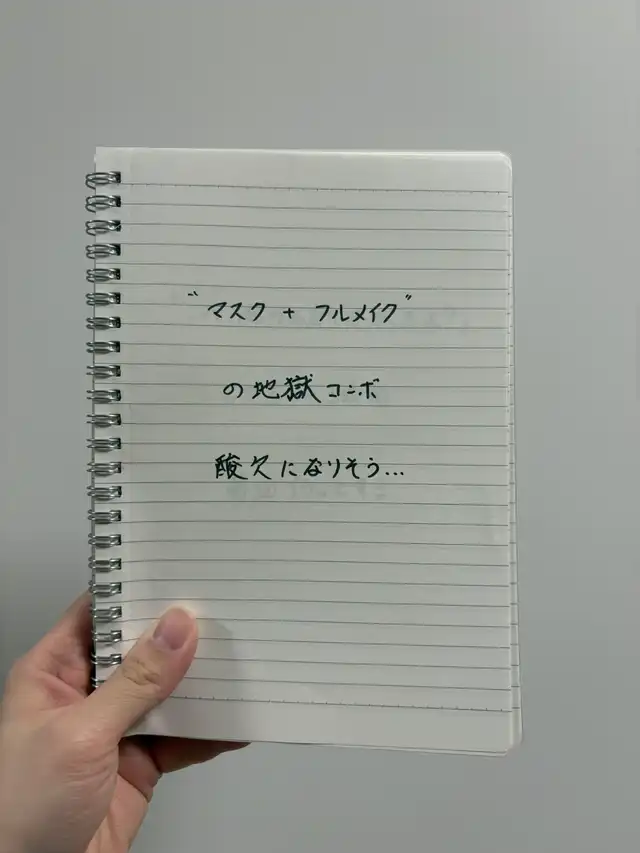 "マスク + フルメイク"
の地獄コンボ
酸欠になりそう...